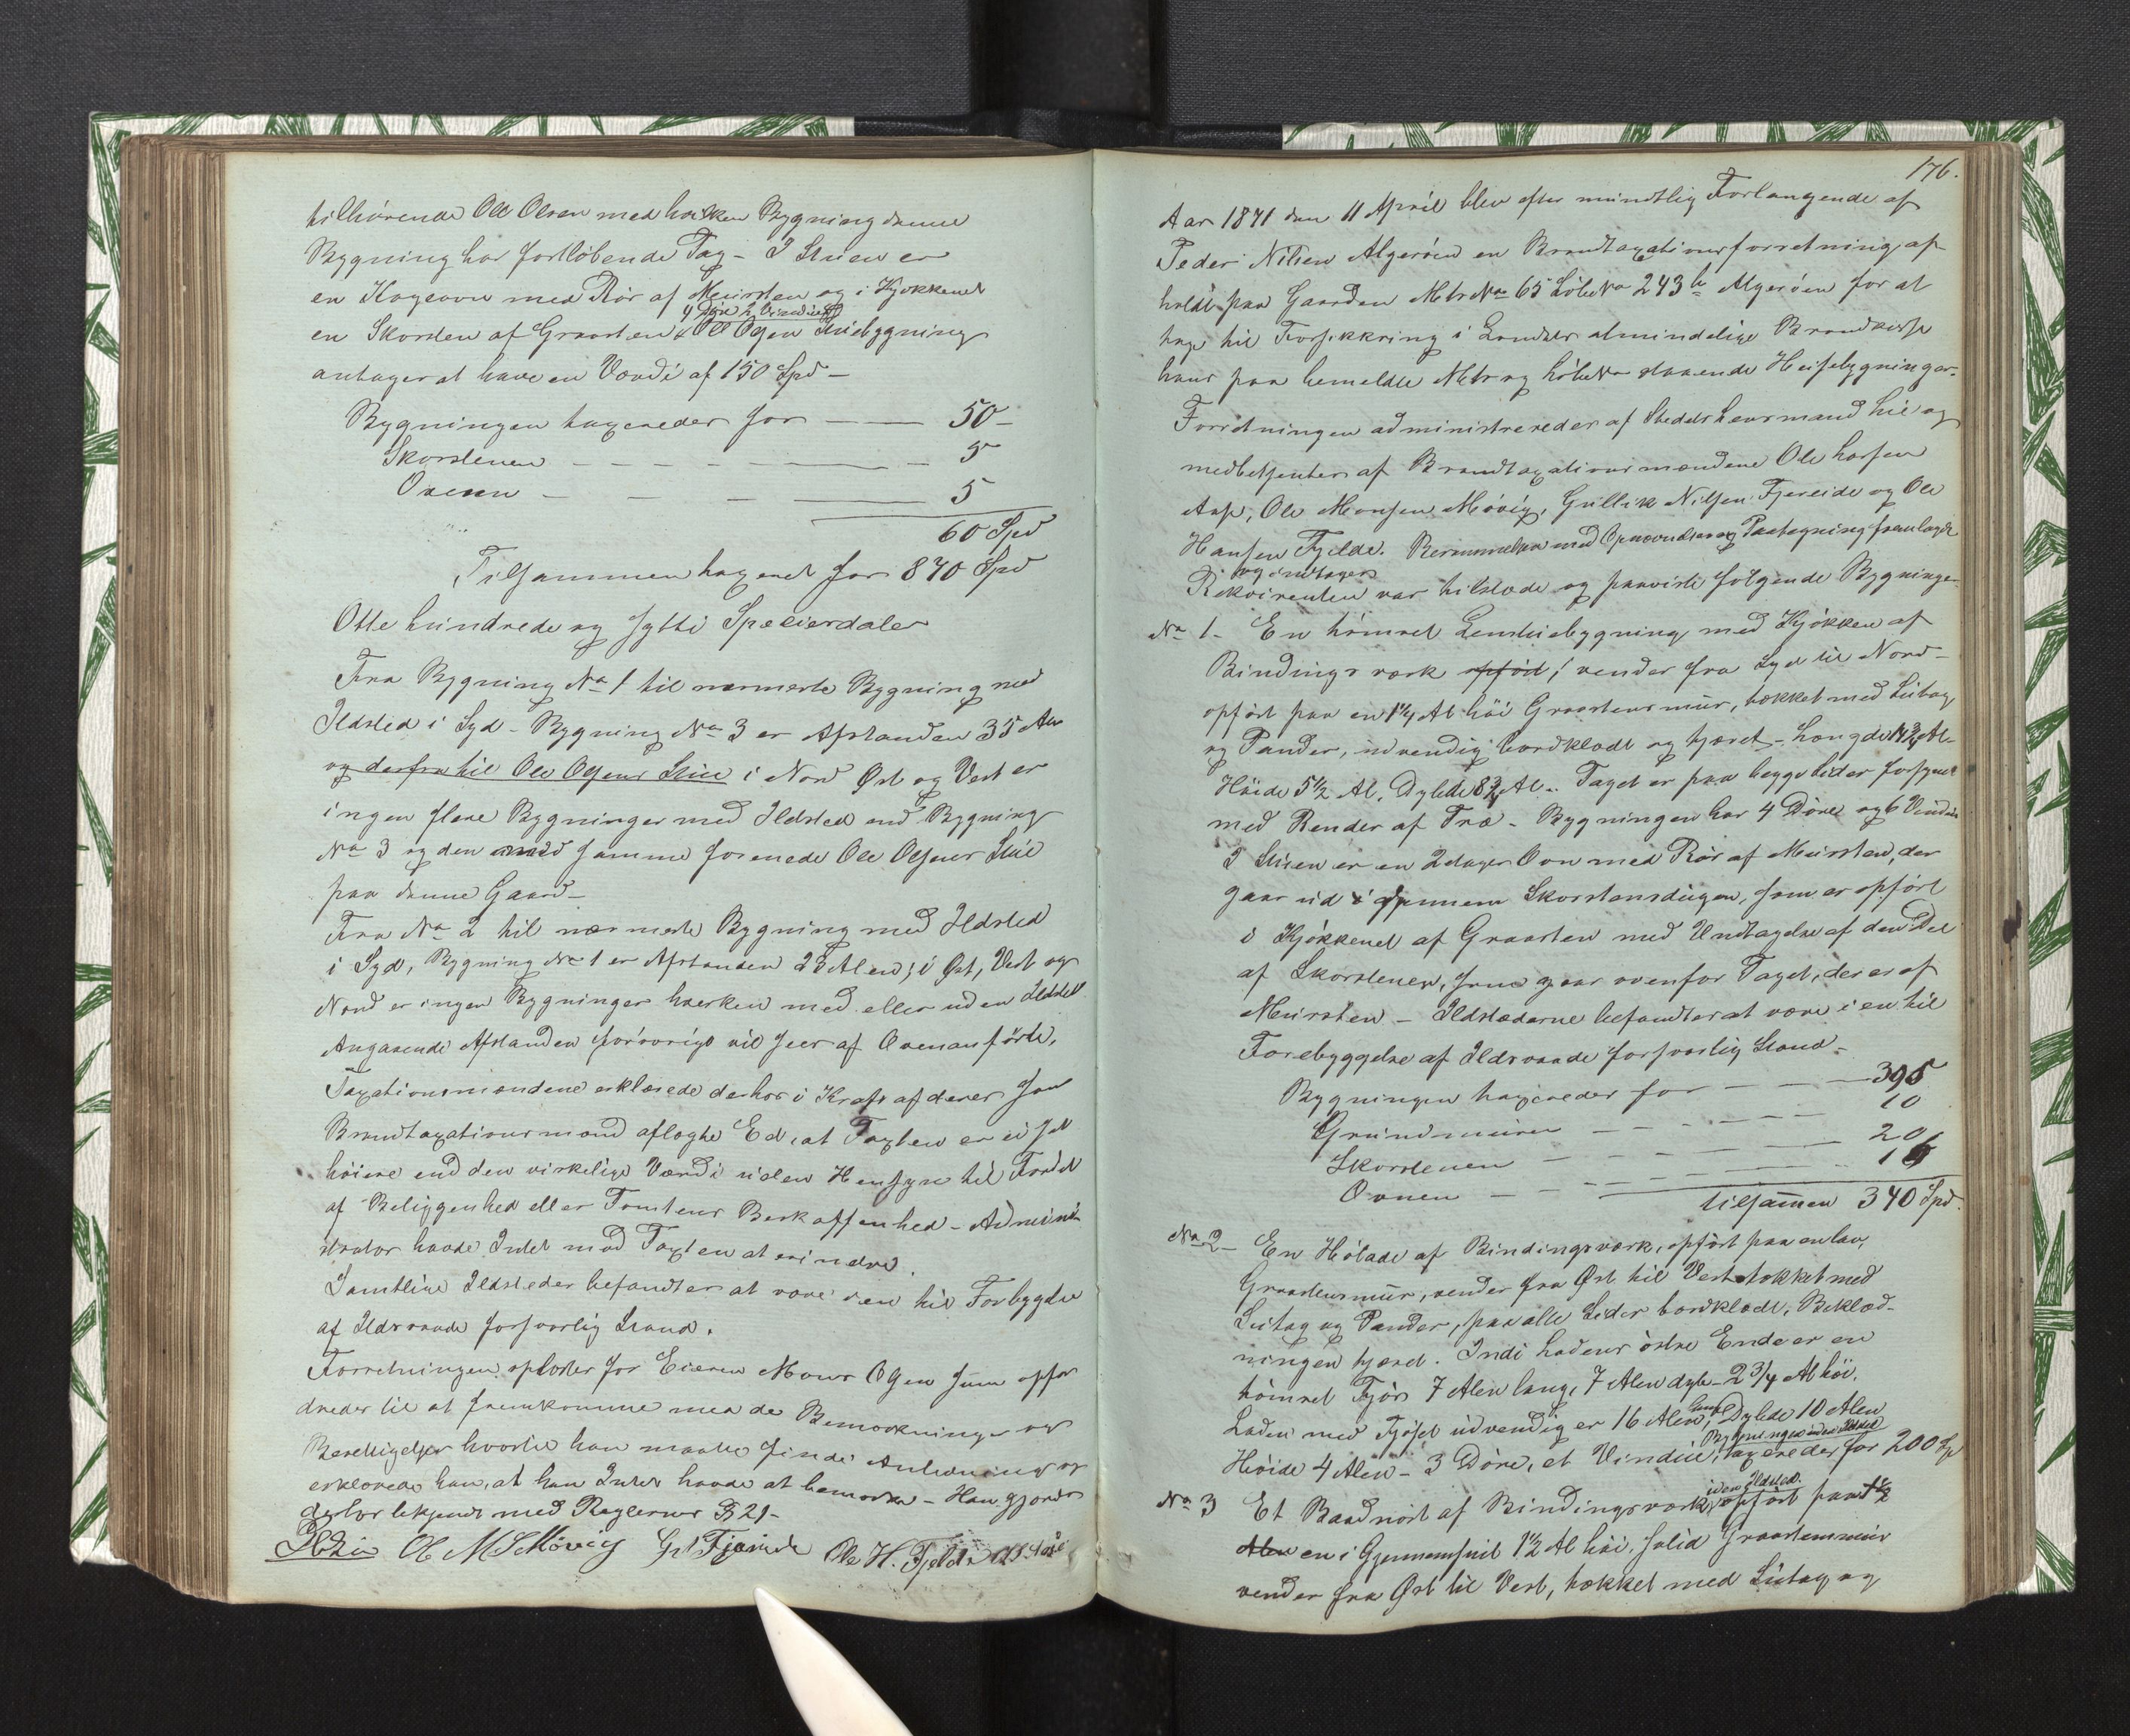 tilhörende Ole Olsen med hvilken Bygning denne
Bygning har fortlöbende Tag - I Stuen er
en Kogeovn med Rör af Mursten og i Kjökkenet
4 Döre 2 Vinduer
en Skorsten af Graasten Ole Olsens Stuebygning
antages at have en Værdi af 150 Spd -
Bygningen taxeredes for - 50 -
Skorstenen - 5
Ovenen - 5
60 Spd
Tilsammen taxeret for 870 Spd
Otte hundrede og sytti Speciedaler
Fra Bygning No 1 til nærmeste Bygning med
Ildsted i Syd - Bygning No 3 er Afstanden 35 Alen
og derfra til Ole Olsens Stue i Nord Øst og Vest er
ingen flere Bygninger med Ildsted end Bygning
No 3 og den med samme forenede Ole Olsens Stue
paa denne Gaard -
Fra No 2 til nærmeste Bygning med Ildsted
i Syd, Bygning No 1 er Afstanden 23 Alen; i Øst, Vest og
Nord er ingen Bygninger hverken med eller uden Ildsted
Angaaende Afstanden forövrigt vil sees af Ovenanförte.
Taxationsmændene erklærede derhos i Kraft af deres som
Brandtaxationsmænd aflagte Ed, at Taxten er ei sat
höiere end den virkelige Værdi uden Hensyn til Fordel
af Beliggenhed eller Tomtens Beskaffenhed - Admini-
strator havde Intet mod Taxten at erindre.
Samtlige Ildsteder befandtes at være i en til Forbyggelse
af Ildsvaade forsvarlig Stand.
Forretningen oplæstes for Eieren Mons Olsen som opfor
dredes til at fremkomme med de Bemærkninger og
Berettigelser hvortil han maatte finde Anledning og
erklærede han, at han Intet havde at bemærke - Han gjordes
derhos bekjendt med Reglernes § 21 -
Ole M S Mövig G N Fjæreide Ole H. Fjelde
176.
Aar 1871 den 11 April blev efter mundtlig Forlangende af
Peder Nilsen Algeröen en Brandtaxationsforretning af
holdt paa Gaarden Matr No 65 Löbe No 243 b Algeröen for at
tage til Forsikkring i Landets almindelige Brandkasse
hans paa bemeldte Matr og Löbe No staaende Huusebygninger.
Forretningen administreredes af Stedets Lensmand Lie og
medbetjentes af Brandtaxationsmændene Ole Larsen
Aase, Ole Monsen Mövig, Gullik Nilsen Fjereide og Ole
Hansen Fjelde. Berammelsen med Opnævnelse og Paategning fremlagdes
og indtages
Rekvirenten var tilstæde og paaviste fölgende Bygninger
No 1 - En tömret Lemstuebygning, med Kjökken af
Bindingsværk opfört, vender fra Syd til Nord -
opfört paa en 1 1/4 Al höi Graastensmur, tækket med Lutag
og Pander, udvendig bordklædt og tjæret - Længde 14 3/4 Al -
Höide 5 1/2 Al. Dybde 8 3/4 Al. Taget er paa begge Sider forsynet
med Render af Træ - Bygningen har 4 Döre og 6 Vinduer
I Stuen er en 2 etages Ovn med Rör af Mursten, der
gaar ud i gjennem Skorstensdugen, som er opfört
i Kjökkenet af Graasten med Undtagelse af den Del
af Skorstenen, som gaar ovenfor Taget, der er af
Mursten - Ildstæderne befandtes at være i en til
Forebyggelse af Ildsvaade forsvarlig Stand -
Bygningen taxeredes for - 395
Grundmuren - 10
Skorstenen - 20
Ovnen - 15
tilsammen 340 Spd.
No 2 - En Hölade af Bindingsværk, opfört paa en lav,
Graastensmur, vender fra Øst til Vest tækket med
Lutag og Pander, paa alle Sider bordklædt, Beklæd-
ningen tjæret. Indi Ladens östre Ende er en
tömret Fjös 7 Alen lang, 7 Alen dyb - 2 3/4 Al höi.
Laden med Fjöset udvendig er 16 Alen lang, Dybde 10 Alen
Bygningen uden Ildsted
Höide 4 Alen - 3 Döre, et Vindue, taxeredes for 200 Sp
uden Ildsted.
No 3 Et Baadnöst af Bindingsværk, opfört paa 1 1/2
Alen en i Gjennemsnit 1 1/2 Al höi, solid Graastensmur
vender fra Øst til Vest, tækket med Lutag og